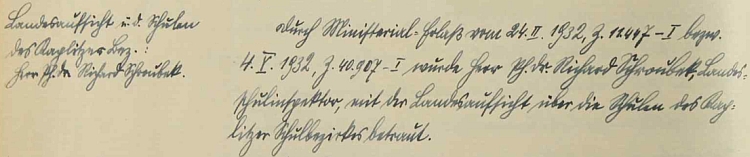 Landesaufsicht ü. d. Schulen
des Kaplitzer Bez. :
Herr Ph. Dr. Richard Schroubek.
Durch Ministerial-Erlaß vom 24. II. 1932, Z. 12497-I bezw.
4. V. 1932, Z. 40.907-I wurde Herr Ph. Dr. Richard Schroubek, Landes-
schulinspektor, mit der Landesaufsicht über die Schulen des Kap-
litzer Schulbezirkes betraut.